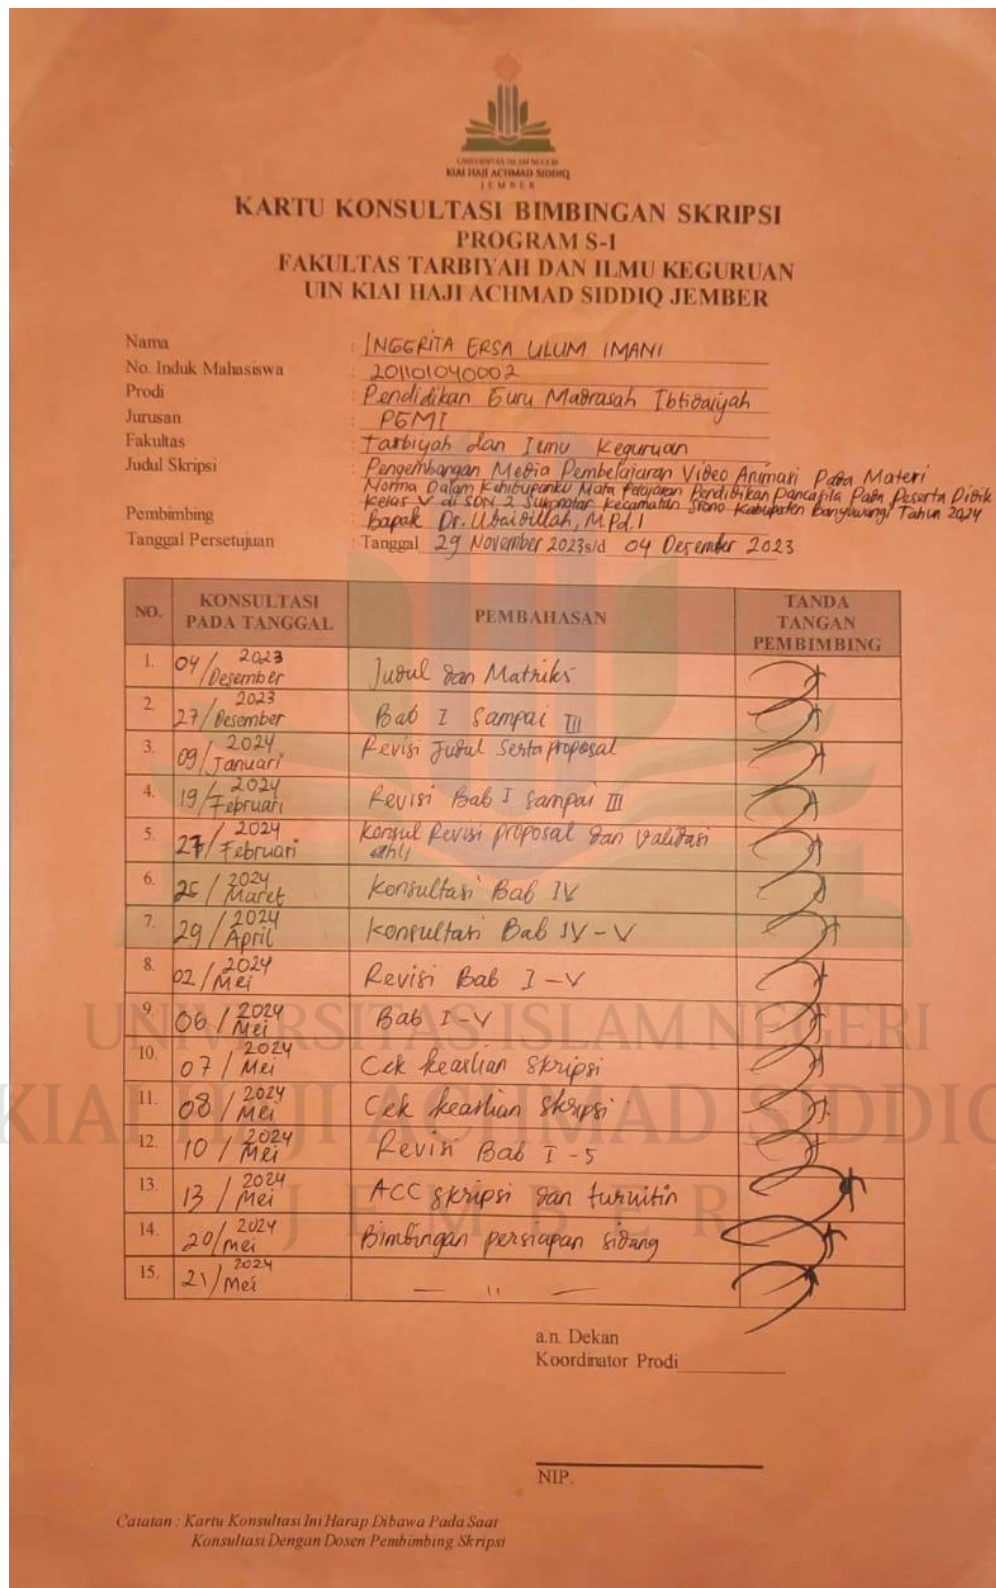 UNIVERSITAS ISLAM NEGERI
KIAI HAJI ACHMAD SIDDIQ
JEMBER
KARTU KONSULTASI BIMBINGAN SKRIPSI
PROGRAM S-1
FAKULTAS TARBIYAH DAN ILMU KEGURUAN
UIN KIAI HAJI ACHMAD SIDDIQ JEMBER
Nama : INGGRITA ERSA ULUM IMANI
No. Induk Mahasiswa : 201101040002
Prodi : Pendidikan Guru Madrasah Ibtidaiyah
Jurusan : PGMI
Fakultas : Tarbiyah dan Ilmu Keguruan
Judul Skripsi : Pengembangan Media Pembelajaran Video Animasi Pada Materi
Norma Dalam Kehidupanku Mata Pelajaran Pendidikan Pancasila Pada Peserta Didik
Kelas V di SDN 2 Sukonatar Kecamatan Srono Kabupaten Banyuwangi Tahun 2024
Pembimbing Bapak Dr. Ubaidillah, M.Pd.I
Tanggal Persetujuan : Tanggal 29 November 2023 s/d 04 Desember 2023
NO. KONSULTASI PADA TANGGAL PEMBAHASAN TANDA TANGAN PEMBIMBING
1. 04/Desember 2023 Judul dan Matriks
2. 27/Desember 2023 Bab I Sampai III
3. 09/Januari 2024 Revisi Judul Serta proposal
4. 19/Februari 2024 Revisi Bab I Sampai III
5. 27/Februari 2024 Konsul Revisi proposal dan validasi ahli
6. 25/Maret 2024 Konsultasi Bab IV
7. 29/April 2024 Konsultasi Bab IV-V
8. 02/Mei 2024 Revisi Bab I-V
9. 06/Mei 2024 Bab I-V
10. 07/Mei 2024 Cek keaslian Skripsi
11. 08/Mei 2024 Cek keaslian Skripsi
12. 10/Mei 2024 Revisi Bab I-5
13. 13/Mei 2024 ACC Skripsi dan turnitin
14. 20/Mei 2024 Bimbingan persiapan sidang
15. 21/Mei 2024 — 11 —
UNIVERSITAS ISLAM NEGERI
KIAI HAJI ACHMAD SIDDIQ
JEMBER
a.n. Dekan
Koordinator Prodi
NIP.
Catatan : Kartu Konsultasi Ini Harap Dibawa Pada Saat
Konsultasi Dengan Dosen Pembimbing Skripsi